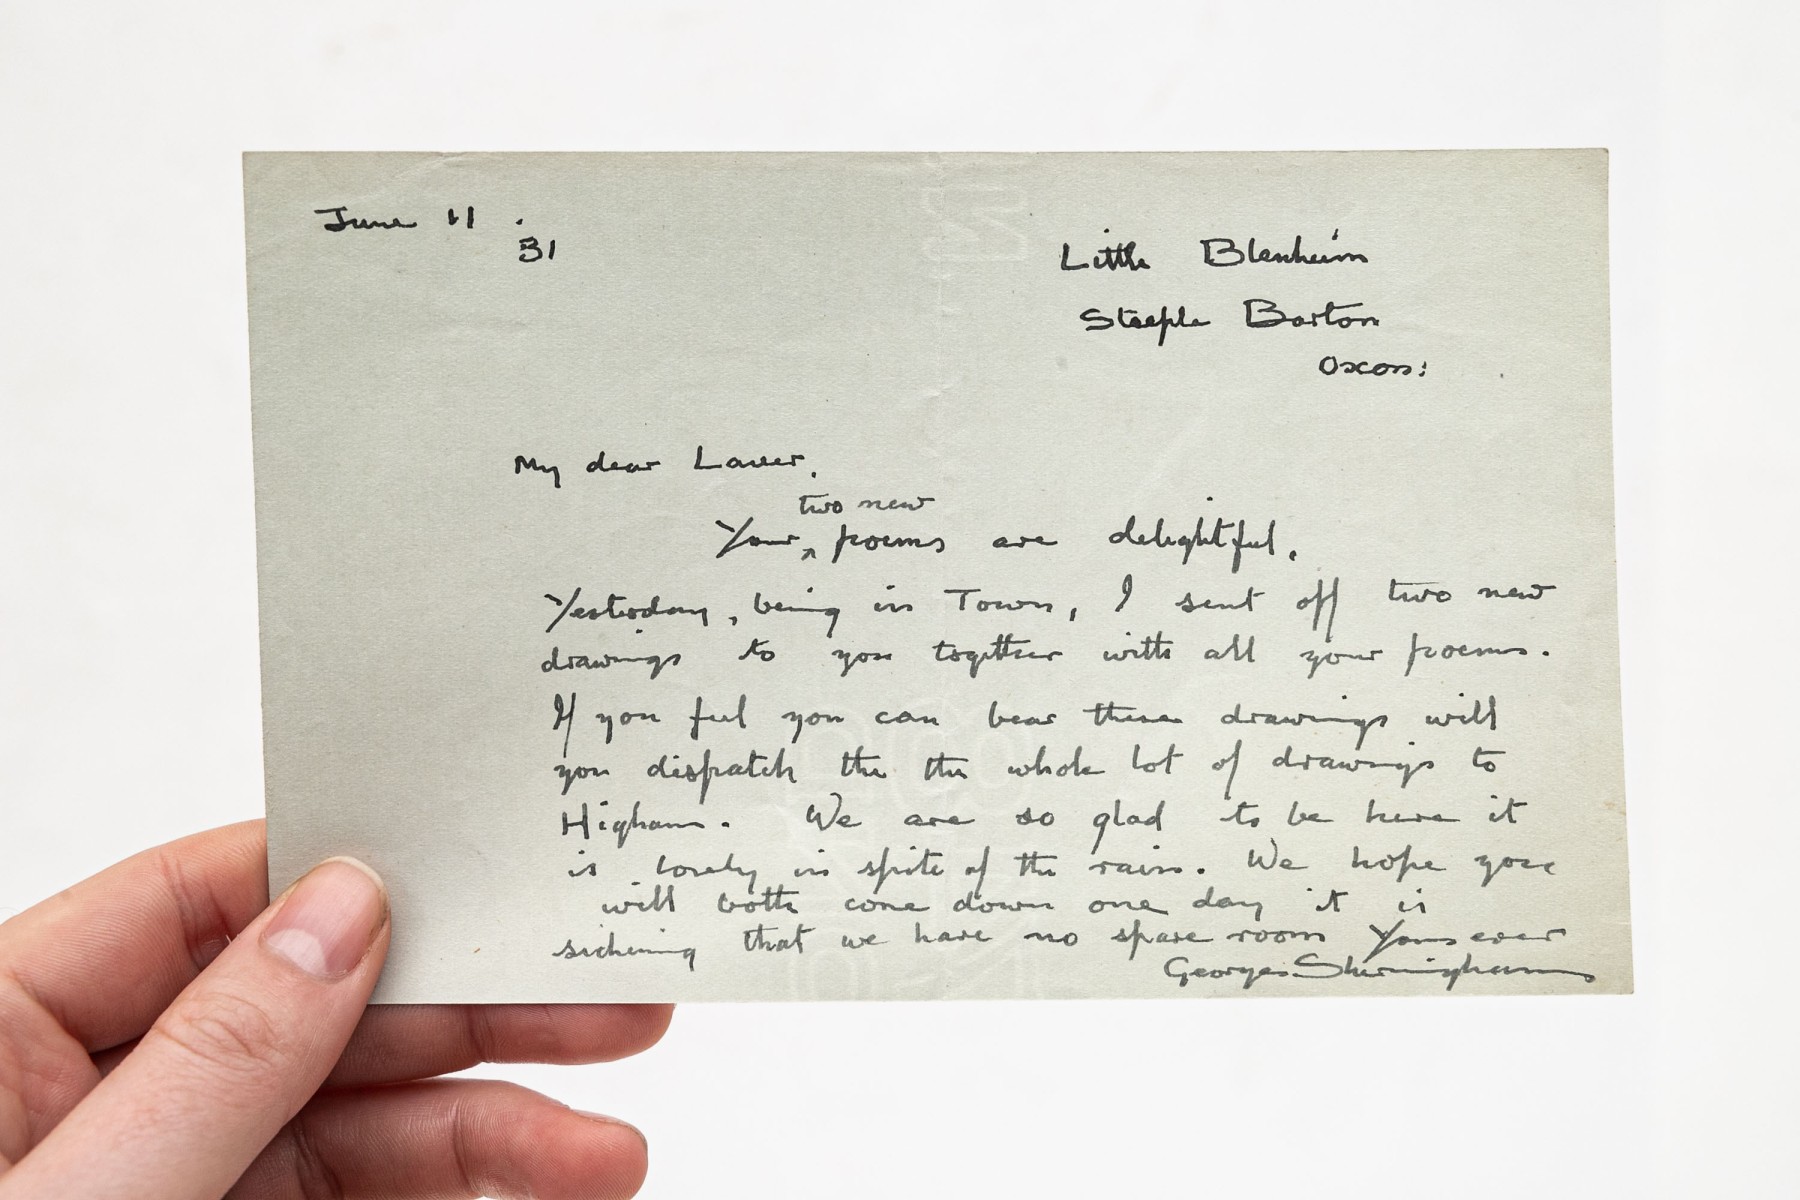 June 11.
31
Little Blenheim
Steeple Barton
Oxon:
My dear Laver,
two new
Your ^ poems are delightful.
Yesterday, being in Town, I sent off two new
drawings to you together with all your poems.
If you feel you can bear these drawings will
you dispatch the the whole lot of drawings to
Higham. We are so glad to be here it
is lovely in spite of the rain. We hope you
will both come down one day it is
sickening that we have no spare room Yours ever
George Sheringham